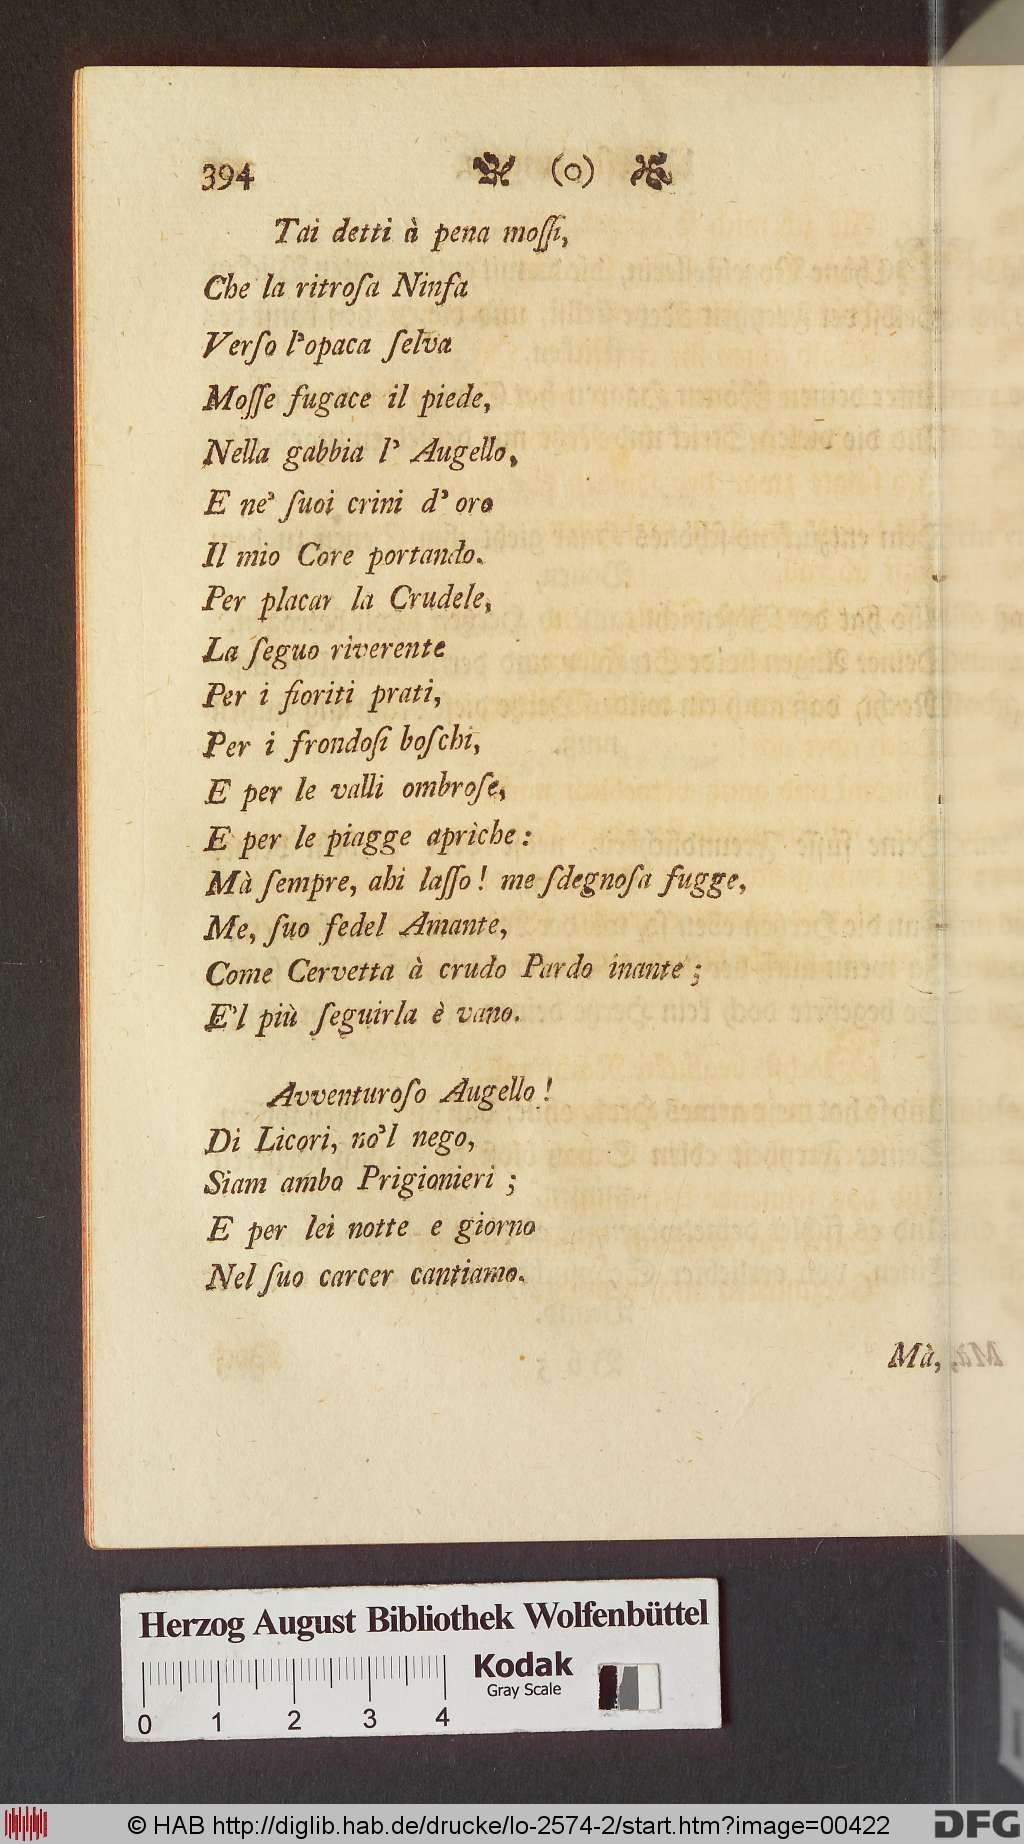 394 (o)
Tai detti à pena moſſi,
Che la ritroſa Ninfa
Verſo l'opaca ſelva
Moſſe fugace il piede,
Nella gabbia l' Augello,
E ne' ſuoi crini d' oro
Il mio Core portando.
Per placar la Crudele,
La ſeguo riverente
Per i fioriti prati,
Per i frondoſi boſchi,
E per le valli ombroſe,
E per le piagge apriche:
Mà ſempre, ahi laſſo! me ſdegnoſa fugge,
Me, ſuo fedel Amante,
Come Cervetta à crudo Pardo inante;
E'l più ſeguirla è vano.
Avventuroſo Augello!
Di Licori, no'l nego,
Siam ambo Prigionieri;
E per lei notte e giorno
Nel ſuo carcer cantiamo.
Mà,
Herzog August Bibliothek Wolfenbüttel
Kodak
Gray Scale
0 1 2 3 4
© HAB http://diglib.hab.de/drucke/lo-2574-2/start.htm?image=00422
DFG